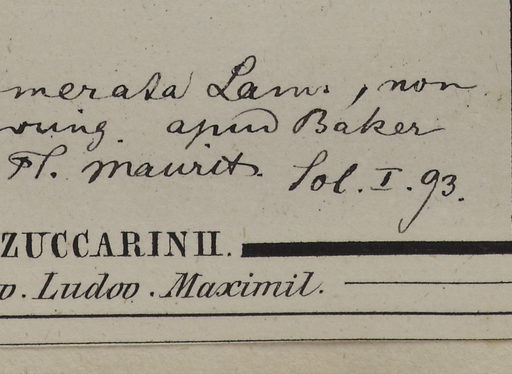 merata Lam., non
apud Baker
Fl. maurit. Sol. I. 93.
ZUCCARINII.
. Ludov. Maximil.